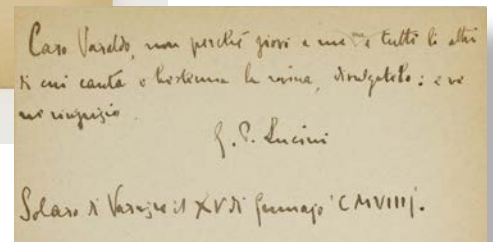 Caro Varaldo, non perché giovi a me e a tutti li altri
di cui canta e bestemmia la rovina, divulgatelo: e ve
ne ringrazio.
G. P. Lucini
Solaro di Varazze il XV di Gennajo 'CMVIIIJ.